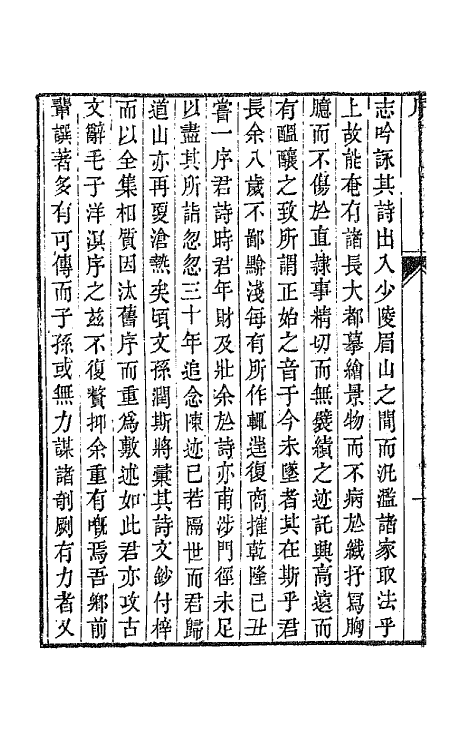 序
志吟詠其詩出入少陵眉山之間而汎濫諸家取法乎
上故能奄有諸長大都摹繪景物而不病於纖抒寫胸
臆而不傷於直隸事精切而無襞績之迹託興高遠而
有醞釀之致所謂正始之音于今未墜者其在斯乎君
長余八歲不鄙黭淺每有所作輒遣復商搉乾隆己丑
嘗一序君詩時君年財及壯余於詩亦甫涉門徑未足
以盡其所詣忽忽三十年追念陳迹已若隔世而君歸
道山亦再夏滄熱矣頃文孫潤斯將彙其詩文鈔付梓
而以全集相質因汰舊序而重爲敷述如此君亦攻古
文辭毛子洋溟序之茲不復贅抑余重有嘅焉吾鄉前
輩譔著多有可傳而子孫或無力謀諸剞劂有力者又